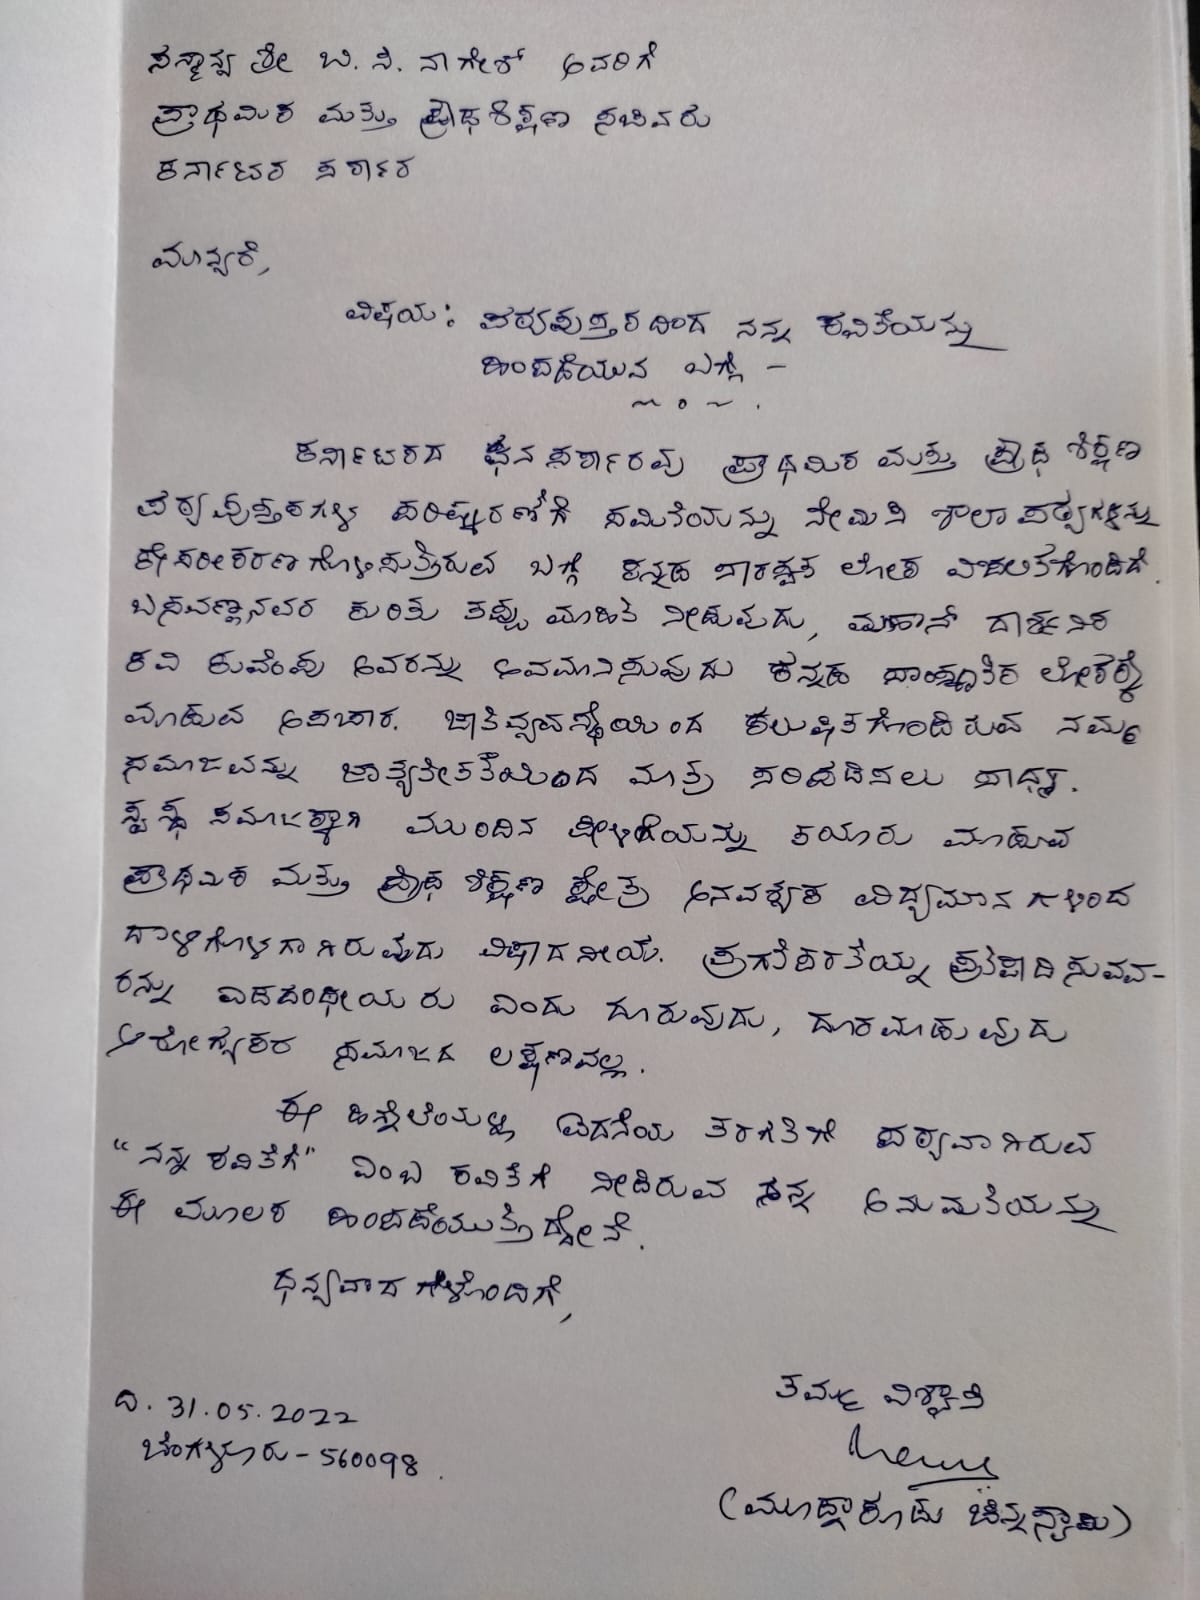 ಸನ್ಮಾನ್ಯ ಶ್ರೀ ಬಿ. ಸಿ. ನಾಗೇಶ್ ಅವರಿಗೆ
ಪ್ರಾಥಮಿಕ ಮತ್ತು ಪ್ರೌಢಶಿಕ್ಷಣ ಸಚಿವರು
ಕರ್ನಾಟಕ ಸರ್ಕಾರ
ಮಾನ್ಯರೆ,
ವಿಷಯ: ಪಠ್ಯಪುಸ್ತಕದಿಂದ ನನ್ನ ಕವಿತೆಯನ್ನು
ಹಿಂಪಡೆಯುವ ಬಗ್ಗೆ -
ಕರ್ನಾಟಕದ ಘನ ಸರ್ಕಾರವು ಪ್ರಾಥಮಿಕ ಮತ್ತು ಪ್ರೌಢ ಶಿಕ್ಷಣ
ಪಠ್ಯಪುಸ್ತಕಗಳ ಪರಿಷ್ಕರಣೆಗೆ ಸಮಿತಿಯನ್ನು ನೇಮಿಸಿ ಶಾಲಾ ಪಠ್ಯಗಳನ್ನು
ಕೇಸರೀಕರಣಗೊಳಿಸುತ್ತಿರುವ ಬಗ್ಗೆ ಕನ್ನಡ ಸಾರಸ್ವತ ಲೋಕ ವಿಚಲಿತಗೊಂಡಿದೆ.
ಬಸವಣ್ಣನವರ ಕುರಿತು ತಪ್ಪು ಮಾಹಿತಿ ನೀಡುವುದು, ಮಹಾನ್ ದಾರ್ಶನಿಕ
ಕವಿ ಕುವೆಂಪು ಅವರನ್ನು ಅವಮಾನಿಸುವುದು ಕನ್ನಡ ಸಾಂಸ್ಕೃತಿಕ ಲೋಕಕ್ಕೆ
ಮಾಡುವ ಅಪಚಾರ. ಜಾತಿವ್ಯವಸ್ಥೆಯಿಂದ ಕಲುಷಿತಗೊಂಡಿರುವ ನಮ್ಮ
ಸಮಾಜವನ್ನು ಜಾತ್ಯತೀತತೆಯಿಂದ ಮಾತ್ರ ಸರಿಪಡಿಸಲು ಸಾಧ್ಯ.
ಸ್ವಸ್ಥ ಸಮಾಜಕ್ಕಾಗಿ ಮುಂದಿನ ಪೀಳಿಗೆಯನ್ನು ತಯಾರು ಮಾಡುವ
ಪ್ರಾಥಮಿಕ ಮತ್ತು ಪ್ರೌಢ ಶಿಕ್ಷಣ ಕ್ಷೇತ್ರ ಅನವಶ್ಯಕ ವಿದ್ಯಮಾನಗಳಿಂದ
ದಾಳಿಗೊಳಗಾಗಿರುವುದು ವಿಷಾದನೀಯ. ಪ್ರಗತಿಪರತೆಯನ್ನು ಪ್ರತಿಪಾದಿಸುವವ-
ರನ್ನು ಎಡಪಂಥೀಯರು ಎಂದು ದೂರುವುದು, ದೂರಮಾಡುವುದು
ಆರೋಗ್ಯಕರ ಸಮಾಜದ ಲಕ್ಷಣವಲ್ಲ.
ಈ ಹಿನ್ನೆಲೆಯಲ್ಲಿ ಐದನೆಯ ತರಗತಿಗೆ ಪಠ್ಯವಾಗಿರುವ
"ನನ್ನ ಕವಿತೆಗೆ" ಎಂಬ ಕವಿತೆಗೆ ನೀಡಿರುವ ನನ್ನ ಅನುಮತಿಯನ್ನು
ಈ ಮೂಲಕ ಹಿಂಪಡೆಯುತ್ತಿದ್ದೇನೆ.
ಧನ್ಯವಾದಗಳೊಂದಿಗೆ,
ದಿ. 31.05.2022
ಬೆಂಗಳೂರು-560098.
ತಮ್ಮ ವಿಶ್ವಾಸಿ
(ಮೂಡ್ನಾಕೂಡು ಚಿನ್ನಸ್ವಾಮಿ)